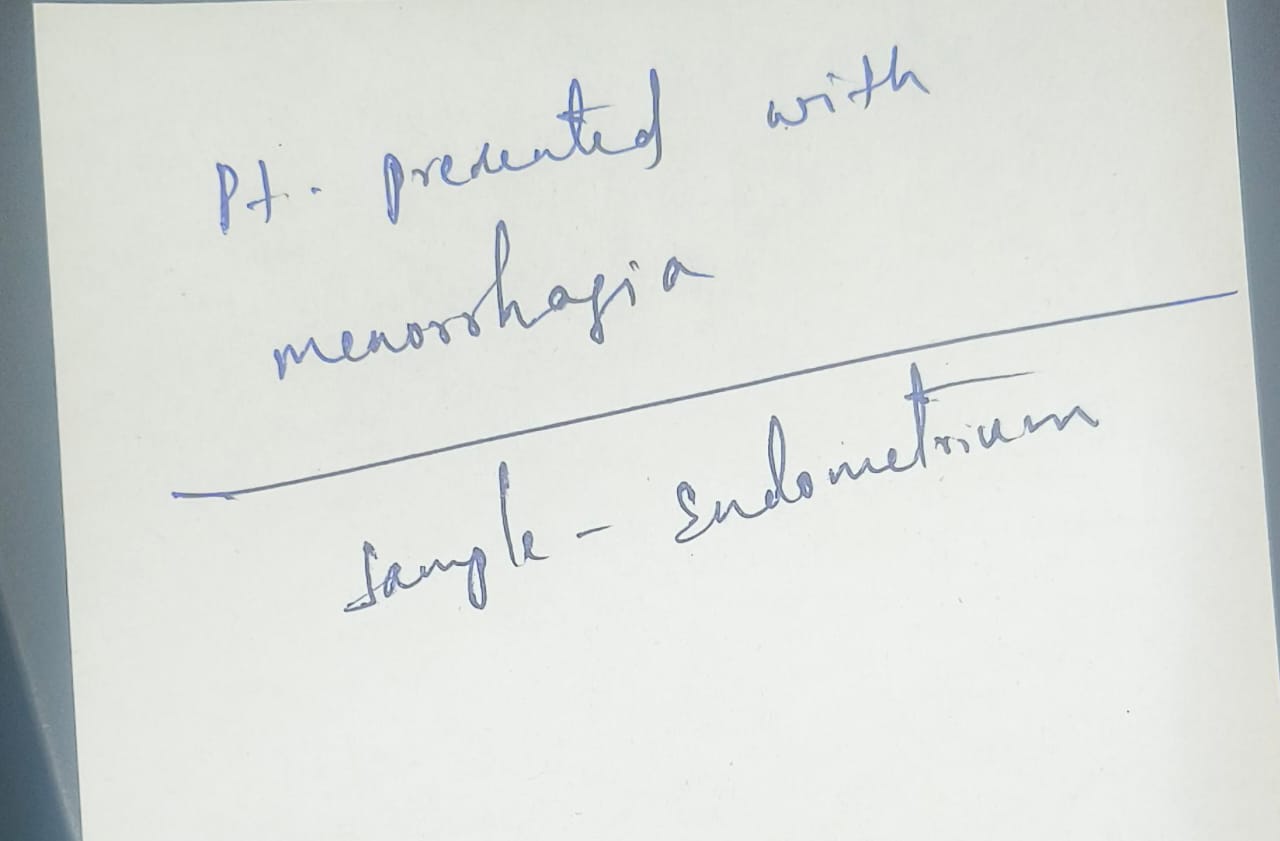 Pt. presented with
menorrhagia
Sample - Endometrium